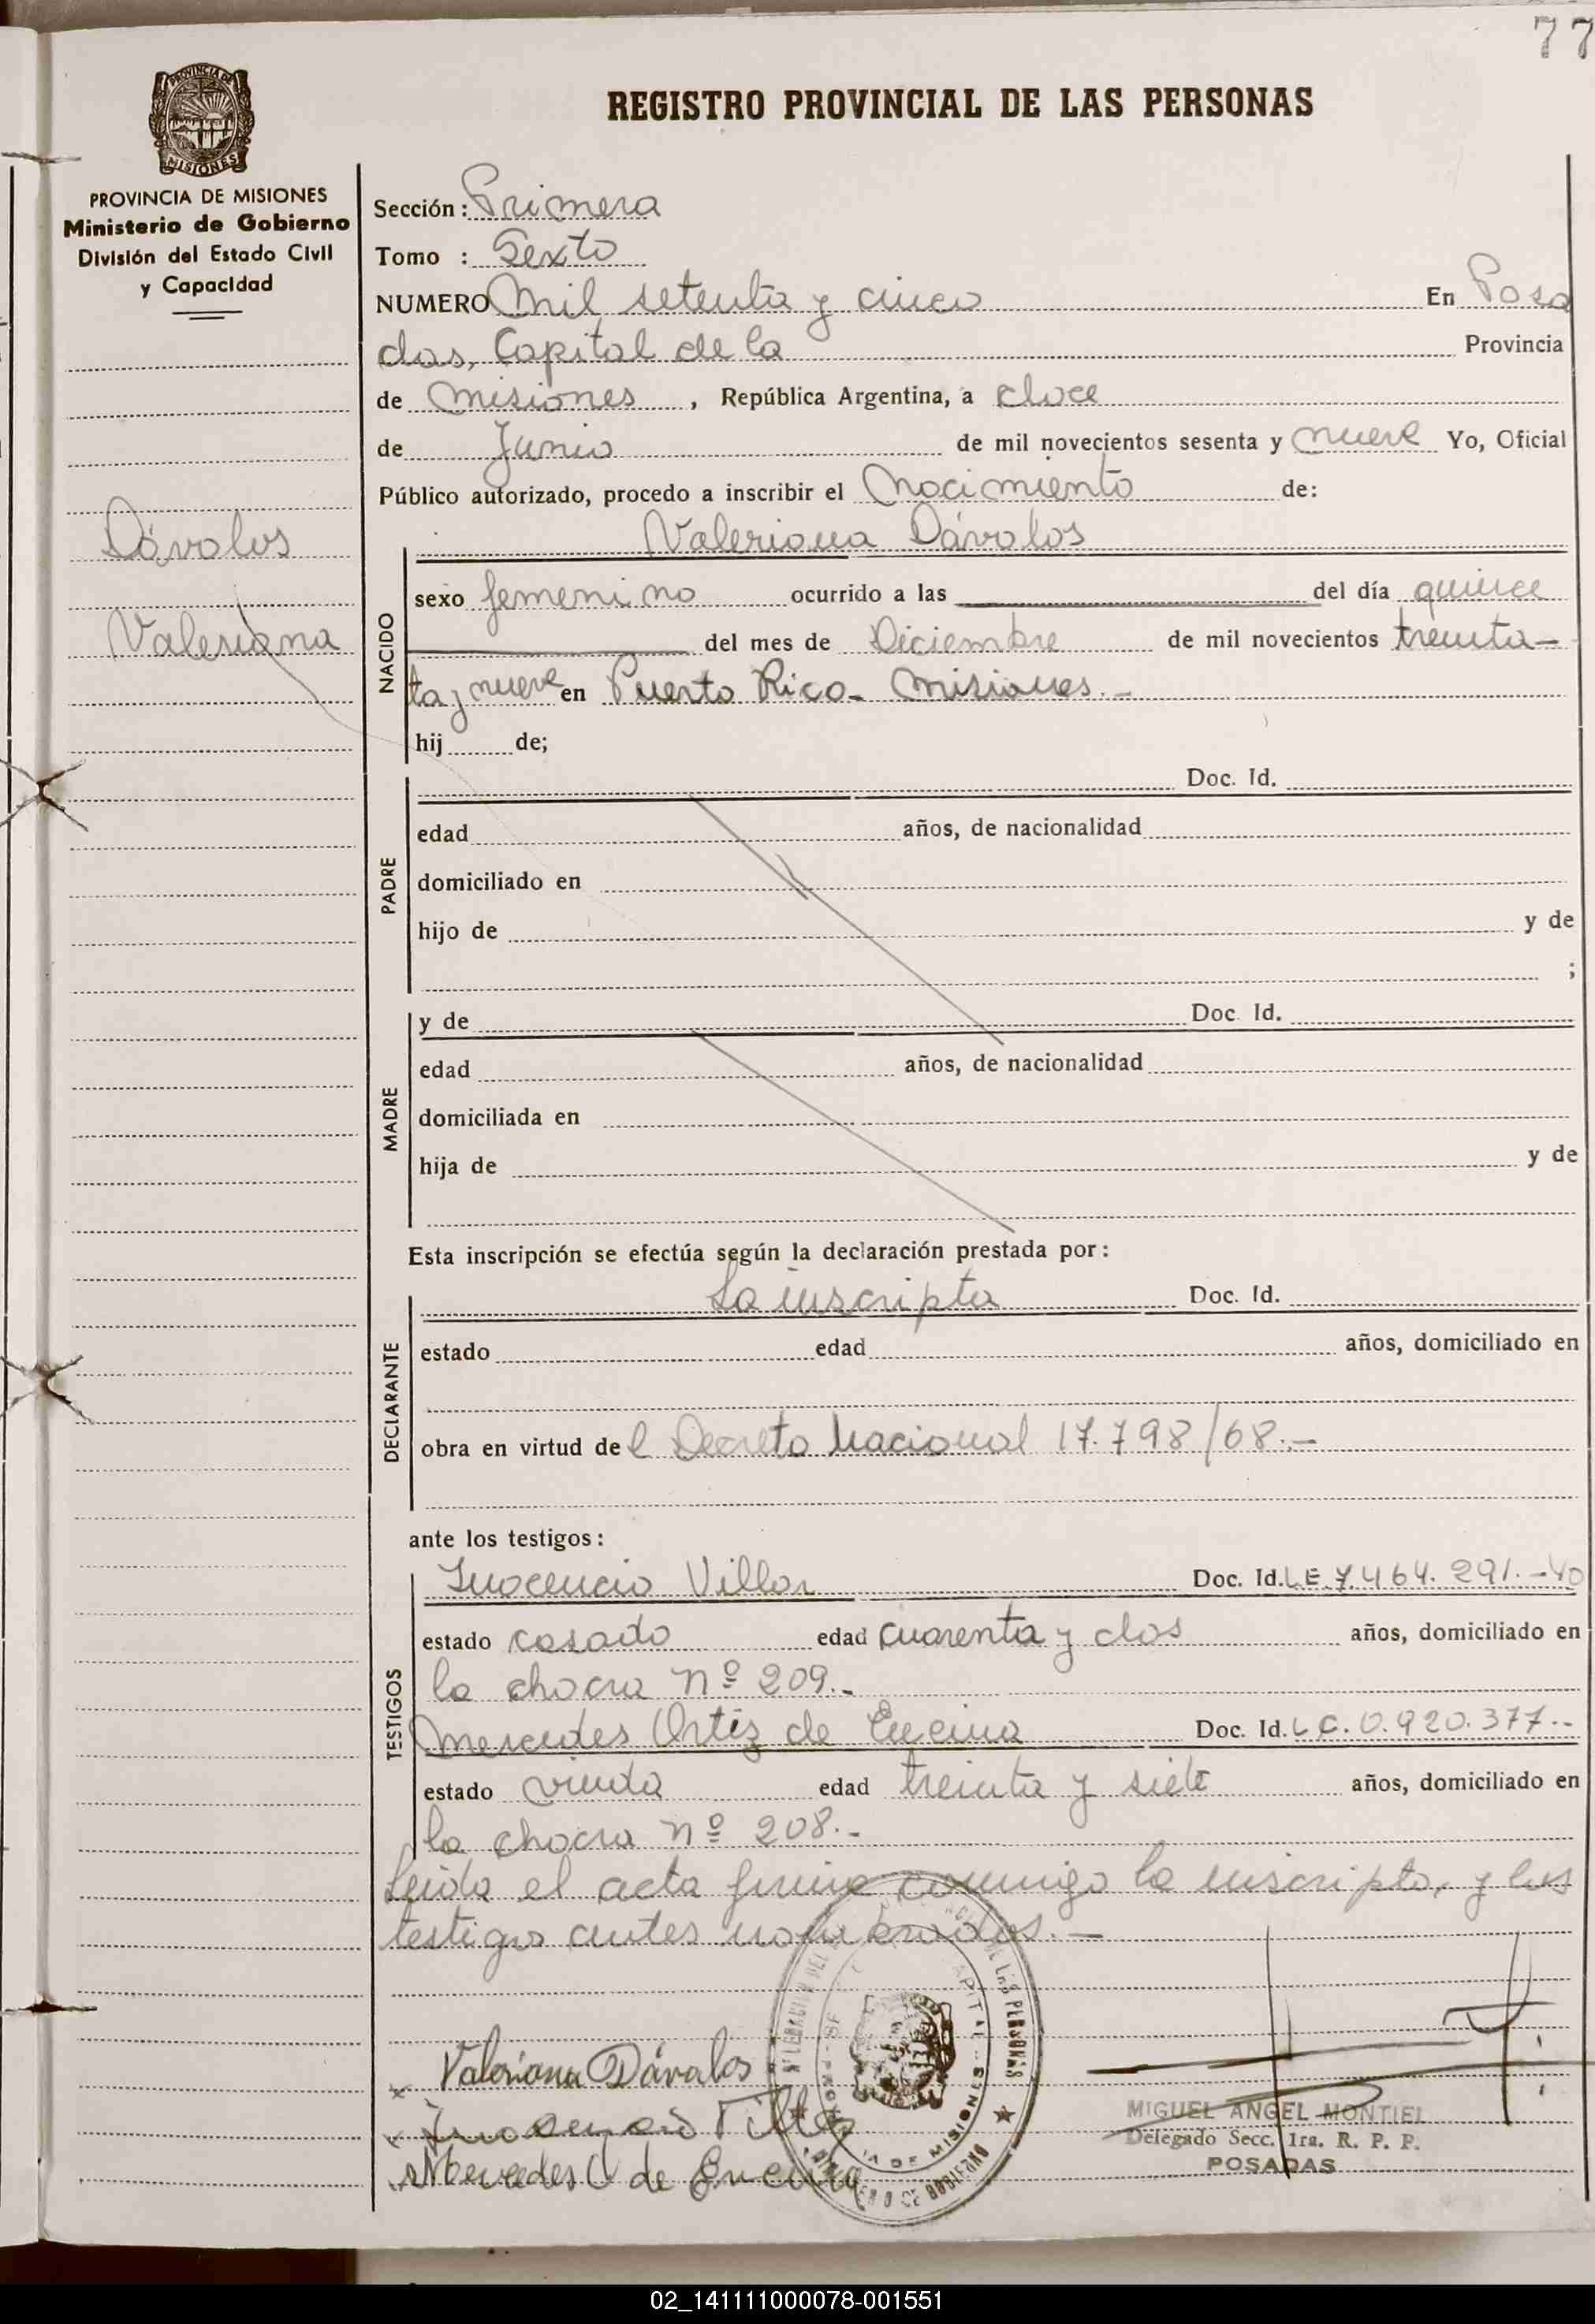 77
REGISTRO PROVINCIAL DE LAS PERSONAS
PROVINCIA DE MISIONES
MISIONES
PROVINCIA DE MISIONES
Ministerio de Gobierno
División del Estado Civil
y Capacidad
Dávalos
Valeriana
Sección : Primera
Tomo : Sexto
NUMERO Mil setenta y cinco En Posa
das, Capital de la Provincia
de Misiones , República Argentina, a doce
de Junio de mil novecientos sesenta y nueve Yo, Oficial
Público autorizado, procedo a inscribir el Nacimiento de:
Valeriana Dávalos
NACIDO
sexo femenino ocurrido a las del día quince
del mes de Diciembre de mil novecientos treinta-
ta y nueve en Puerto Rico- Misiones.-
hij de;
PADRE
Doc. Id.
edad años, de nacionalidad
domiciliado en
hijo de y de
;
MADRE
y de Doc. Id.
edad años, de nacionalidad
domiciliada en
hija de y de
Esta inscripción se efectúa según la declaración prestada por:
DECLARANTE
La inscripta Doc. Id.
estado edad años, domiciliado en
obra en virtud de l Decreto Nacional 17.798/68.-
ante los testigos:
TESTIGOS
Inocencio Villar Doc. Id. L.E. 7.464.291.-40
estado casado edad cuarenta y dos años, domiciliado en
la chacra Nº 209.-
Mercedes Ortiz de Encina Doc. Id. L.C. 0.920.377.-
estado viuda edad treinta y siete años, domiciliado en
la chacra Nº 208.-
Leida el acta firma conmigo la inscripta, y los
testigos antes nombrados.-
x Valeriana Dávalos
x Inocencio Villar
x Mercedes O de Encina
DE LAS PERSONAS
CAPITAL
MISIONES
MIGUEL ANGEL MONTIEL
Delegado Secc. 1ra. R. P. P.
POSADAS
02_141111000078-001551